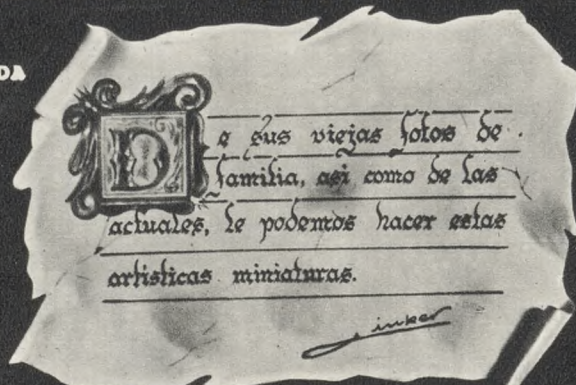 DA
De sus viejas fotos de
familia, asi como de las
actuales, le podemos hacer estas
artisticas miniaturas.